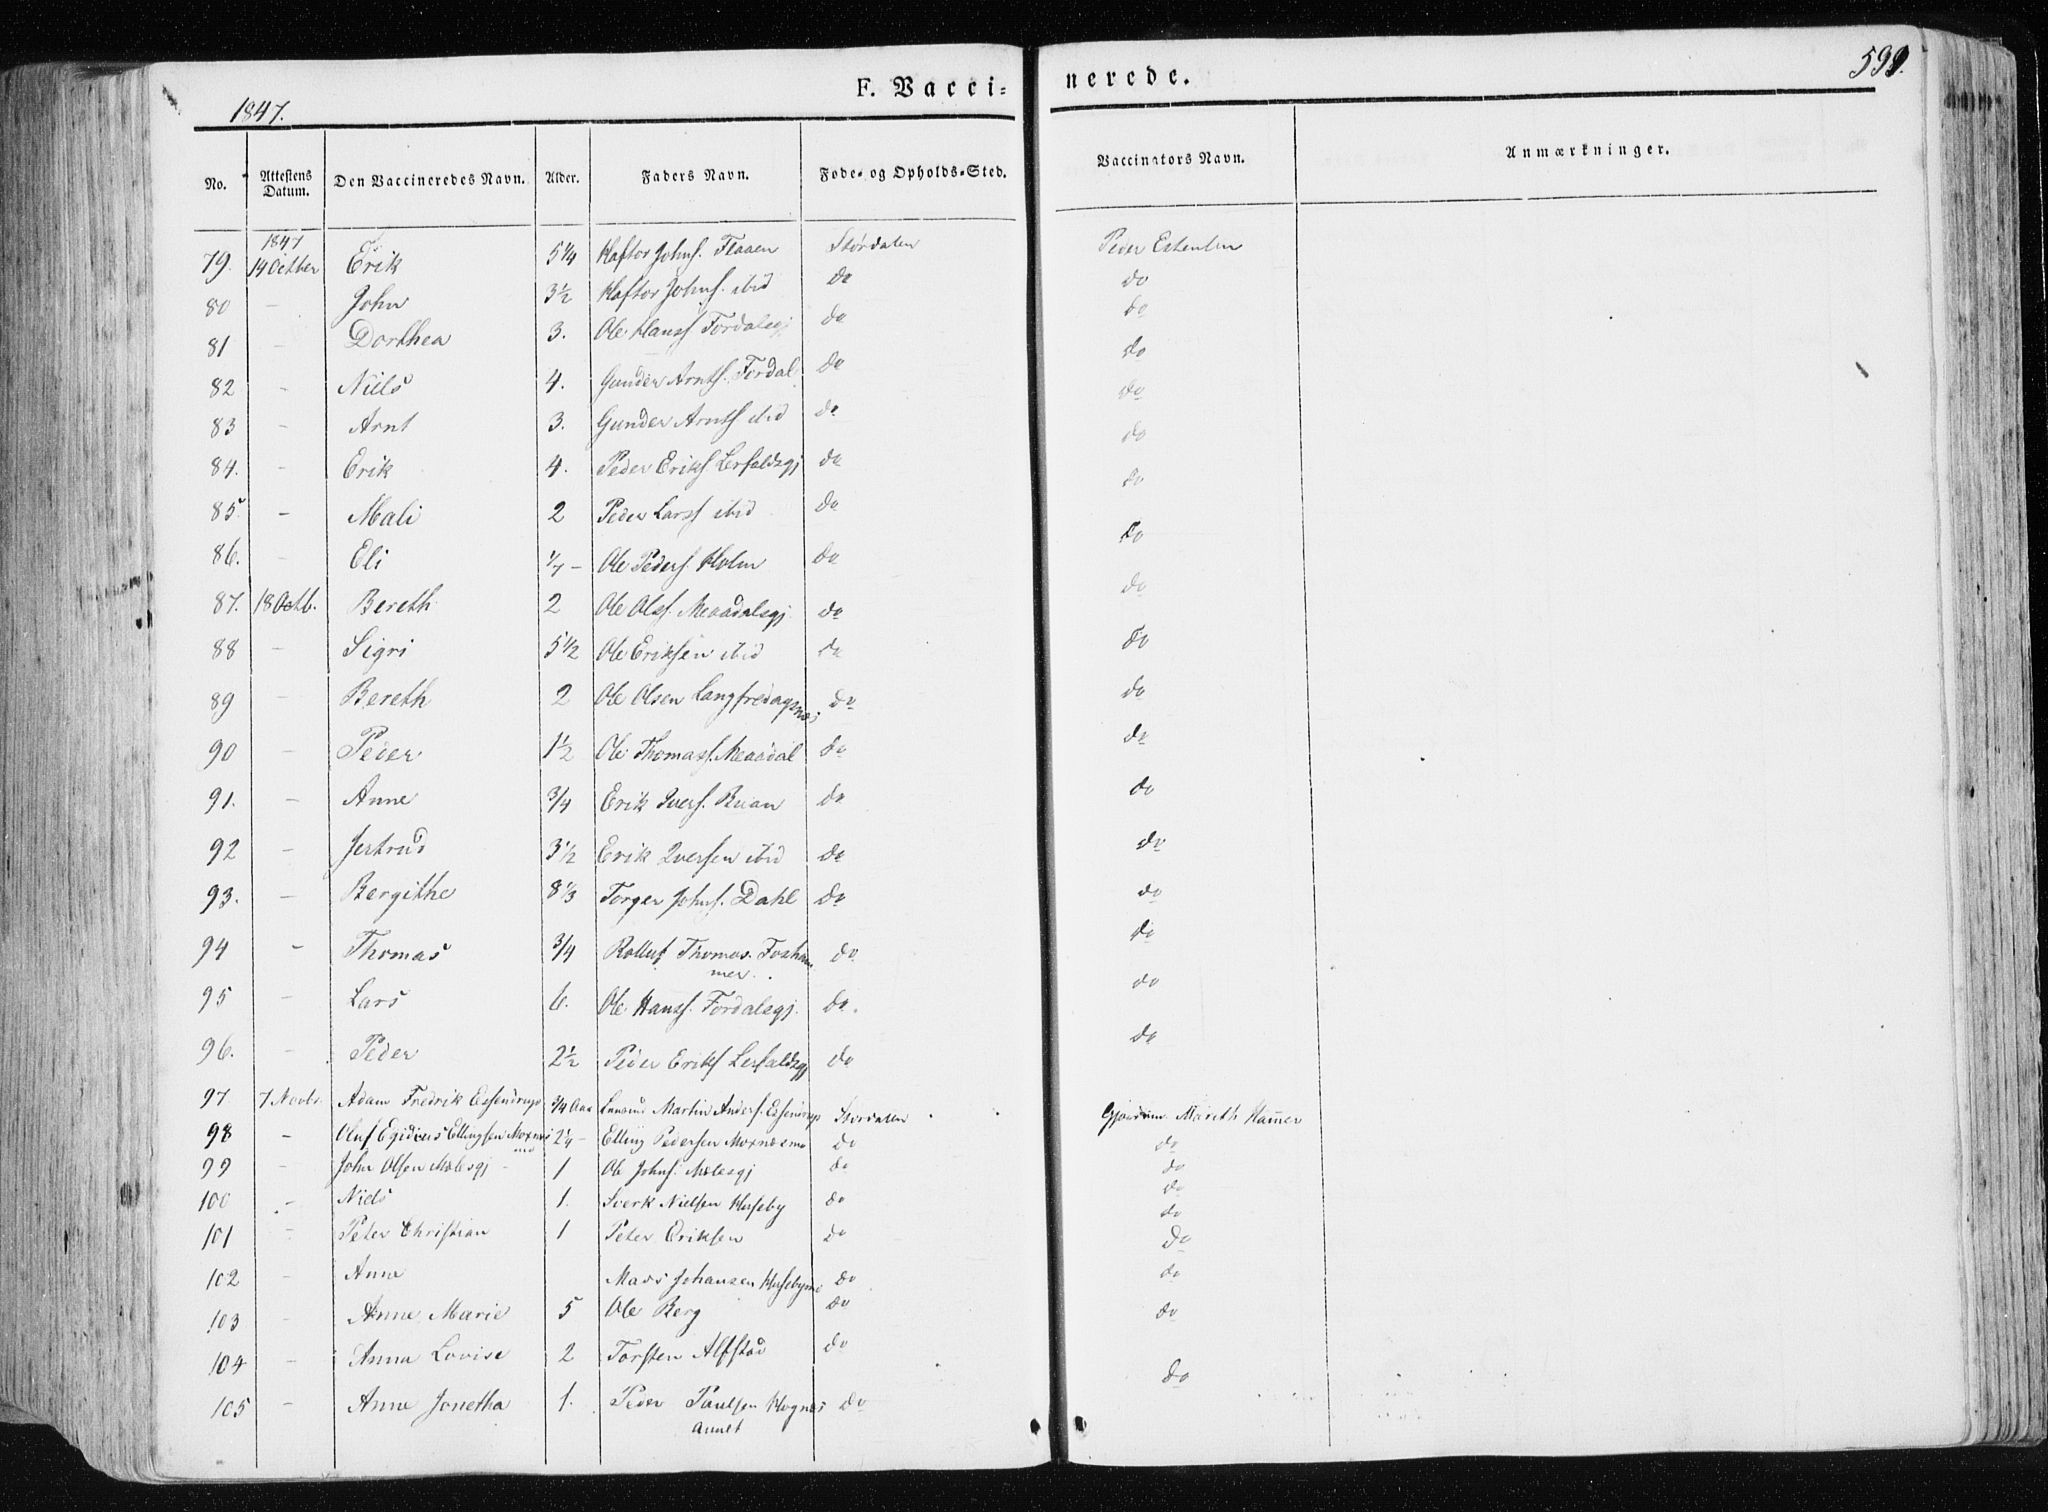 599.
1847.
F. Vacci= nerede.
No. Attestens Datum. Den Vaccineredes Navn. Alder. Faders Navn. Føde- og Opholds-Sted. Vaccinators Navn. Anmærkninger.
1847
79. 14 Octber Erik 5 1/4 Haftor Johns. Flaaen Størdalen Peder Estensen
80 - John 3 1/2 Haftor Johns. ibid do do
81 - Dorthea 3. Ole Hanss Fordalsgj do do
82 - Niels 4. Gunder Arnts. Fordal do do
83 - Arnt 3. Gunder Arnts ibid do do
84. - Erik 4. Peder Eriks Lerfaldsgj do do
85. - Mali 2 Peder Larss ibid do do
86. - Eli 1/7 - Ole Peders. Holm do do
87. 18 Octb. Bereth 2 Ole Ols. Meaadalsgj do do
88 - Sigri 5 1/2 Ole Eriksen ibid do do
89 - Bereth 2 Ole Olsen Langfredagsnæs do do
90 - Peder 1 1/2 Ole Thomass. Meaadal do do
91. - Anne 3/4 Erik Ivers. Ruan do do
92 - Jertrud 3 1/2 Erik Iversen ibid do do
93. - Bergithe 8 1/3 Torger Johns. Dahl do do
94 - Thomas 3/4 Rolluf Thomas. Foshammer. do do
95 - Lars 6. Ole Hanss. Fordalsgj. do. do
96. - Peder 2 1/2 Peder Eriks Lerfaldsgj do do
97 7 Novbr Adam Fredrik Essendrup 3/4 Aar Martin Anders. Essendrup Størdalen Mareth Hamer
98 - Oluf Egidius Ellingsen Moxnæs 2 1/4 - Elling Pedersen Moxnæs do do
99 - John Olsen Mælesgj - 1 Ole Johns. Mælesgj do do
100 - Niels 1. Sverk Nielsen Huseby do do
101 - Peter Christian 1 Peter Eriksen do do
102 - Anne Mads Johansen Husebymo do do
103 - Anne Marie 5 Ole Berg do do
104 - Anna Lovise 2 Torsten Alfstad do do
105 - Anne Jonetha 1. Peder Paulsen Hognæs do do